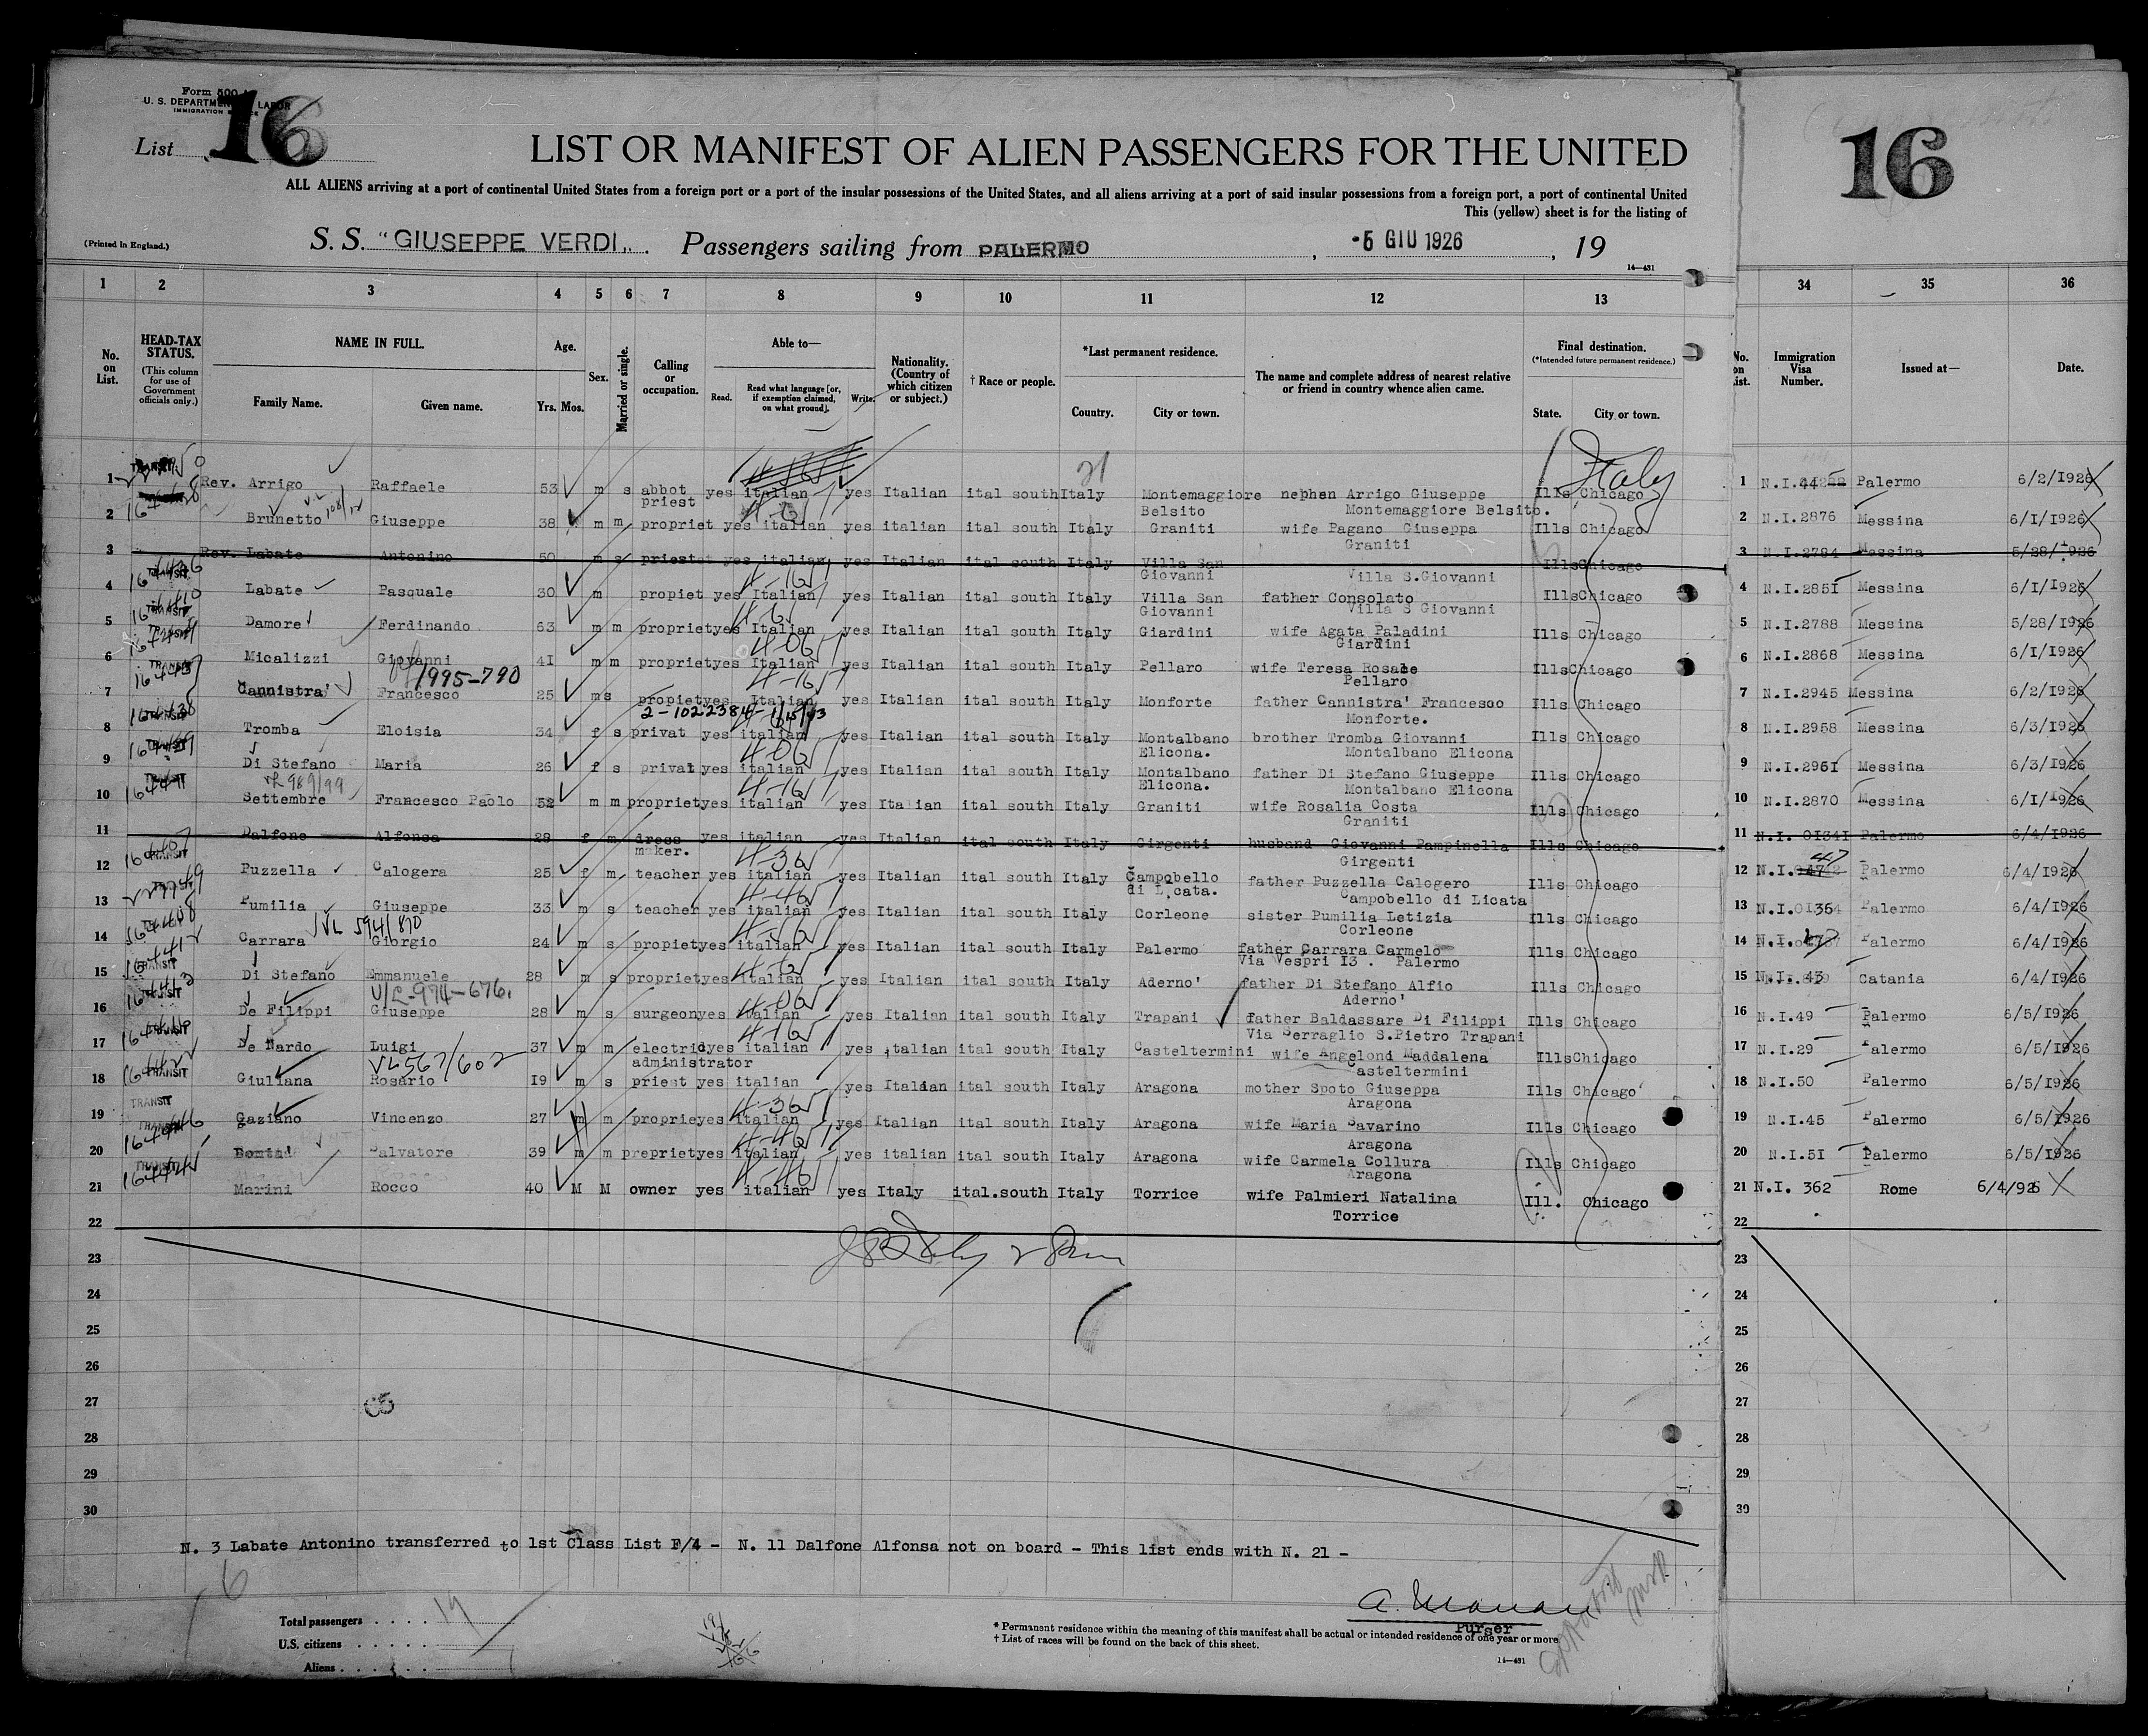 Form 500
U. S. DEPARTMENT LABOR
IMMIGRATION
List 16
16
LIST OR MANIFEST OF ALIEN PASSENGERS FOR THE UNITED
ALL ALIENS arriving at a port of continental United States from a foreign port or a port of the insular possessions of the United States, and all aliens arriving at a port of said insular possessions from a foreign port, a port of continental United
This (yellow) sheet is for the listing of
(Printed in England.)
S. S. "GIUSEPPE VERDI„ Passengers sailing from PALERMO, -5 GIU 1926, 19
14—431
1 2 3 4 5 6 7 8 9 10 11 12 13 34 35 36
No. on List.
HEAD-TAX STATUS.
(This column for use of Government officials only.)
NAME IN FULL.
Family Name. Given name.
Age.
Yrs. Mos.
Sex.
Married or single.
Calling or occupation.
Able to—
Read. Read what language [or, if exemption claimed, on what ground]. Write.
Nationality. (Country of which citizen or subject.)
† Race or people.
*Last permanent residence.
Country. City or town.
The name and complete address of nearest relative or friend in country whence alien came.
Final destination.
(*Intended future permanent residence.)
State. City or town.
No. on List.
Immigration Visa Number.
Issued at—
Date.
Italy
1 Rev. Arrigo Raffaele 53 m s abbot yes italian yes Italian ital south Italy Montemaggiore nephen Arrigo Giuseppe Ills Chicago 1 N.I.44 Palermo 6/2/1926
priest Belsito Montemaggiore Belsito.
2 Brunetto Giuseppe 38 m m propriet yes italian yes italian ital south Italy Graniti wife Pagano Giuseppa Ills Chicago 2 N.I.2876 Messina 6/1/1926
Graniti
3 Rev. Labate Antonino 50 m s priest yes italian yes Italian ital south Italy Villa San Ills Chicago 3 N.I.2784 Messina 5/28/1926
Giovanni Villa S.Giovanni
4 Labate Pasquale 30 m propiet yes Italian yes Italian ital south Italy Villa San father Consolato Ills Chicago 4 N.I.2851 Messina 6/1/1926
Giovanni Villa S Giovanni
5 Damore Ferdinando 63 m m propriet yes Italian yes Italian ital south Italy Giardini wife Agata Paladini Ills Chicago 5 N.I.2788 Messina 5/28/1926
Giardini
6 Micalizzi Giovanni 41 m m propriet yes Italian yes Italian ital south Italy Pellaro wife Teresa Rosace Ills Chicago 6 N.I.2868 Messina 6/1/1926
1995-790 Pellaro
7 Cannistra' Francesco 25 m s propiet yes Italian yes Italian ital south Italy Monforte father Cannistra' Francesco Ills Chicago 7 N.I.2945 Messina 6/2/1926
Monforte.
8 Tromba Eloisia 34 f s privat yes italian yes Italian ital south Italy Montalbano brother Tromba Giovanni Ills Chicago 8 N.I.2958 Messina 6/3/1926
Elicona. Montalbano Elicona
9 Di Stefano Maria 26 f s privat yes italian yes Italian ital south Italy Montalbano father Di Stefano Giuseppe Ills Chicago 9 N.I.2961 Messina 6/3/1926
Elicona. Montalbano Elicona
10 Settembre Francesco Paolo 52 m m propriet yes italian yes Italian ital south Italy Graniti wife Rosalia Costa Ills Chicago 10 N.I.2870 Messina 6/1/1926
Graniti
11 Dalfone Alfonsa 28 f m dress yes italian yes Italian ital south Italy Girgenti husband Giovanni Pampinella Ills Chicago 11 N.I. 01341 Palermo 6/4/1926
maker. Girgenti
12 Puzzella Calogera 25 f m teacher yes italian yes Italian ital south Italy Campobello father Puzzella Calogero Ills Chicago 12 N.I. 47 Palermo 6/4/1926
di Licata. Campobello di Licata
13 Pumilia Giuseppe 33 m s teacher yes italian yes Italian ital south Italy Corleone sister Pumilia Letizia Ills Chicago 13 N.I. 36 Palermo 6/4/1926
VL 594/870 Corleone
14 Carrara Giorgio 24 m s propiet yes italian yes Italian ital south Italy Palermo father Carrara Carmelo Ills Chicago 14 N.I. Palermo 6/4/1926
Via Vespri 13. Palermo
15 Di Stefano Emmanuele 28 m s propriet yes italian yes Italian ital south Italy Aderno' father Di Stefano Alfio Ills Chicago 15 N.I. 43 Catania 6/4/1926
V/L-974-676. Aderno'
16 De Filippi Giuseppe 28 m s surgeon yes italian yes Italian ital south Italy Trapani father Baldassare Di Filippi Ills Chicago 16 N.I.49 Palermo 6/5/1926
Via Serraglio S.Pietro Trapani
17 De Nardo Luigi 37 m m electric yes italian yes italian ital south Italy Casteltermini wife Angeloni Maddalena Ills Chicago 17 N.I.29 Palermo 6/5/1926
VL567/602 administrator Casteltermini
18 Giuliana Rosario 19 m s priest yes italian yes Italian ital south Italy Aragona mother Spoto Giuseppa Ills Chicago 18 N.I.50 Palermo 6/5/1926
TRANSIT Aragona
19 Gaziano Vincenzo 27 m m proprie yes italian yes Italian ital south Italy Aragona wife Maria Savarino Ills Chicago 19 N.I.45 Palermo 6/5/1926
Aragona
20 Salvatore 39 m m propriet yes italian yes italian ital south Italy Aragona wife Carmela Collura Ills Chicago 20 N.I.51 Palermo 6/5/1926
Aragona
21 Marini Rocco 40 M M owner yes italian yes Italy ital.south Italy Torrice wife Palmieri Natalina Ill. Chicago 21 N.I. 362 Rome 6/4/926
Torrice
22 22
23 23
24 24
25 25
26 26
27 27
28 28
29 29
30 39
N. 3 Labate Antonino transferred to 1st Class List F/4 - N. 11 Dalfone Alfonsa not on board - This list ends with N. 21 -
Total passengers 19
U.S. citizens
Aliens
Purser
* Permanent residence within the meaning of this manifest shall be actual or intended residence of one year or more.
† List of races will be found on the back of this sheet.
14—431